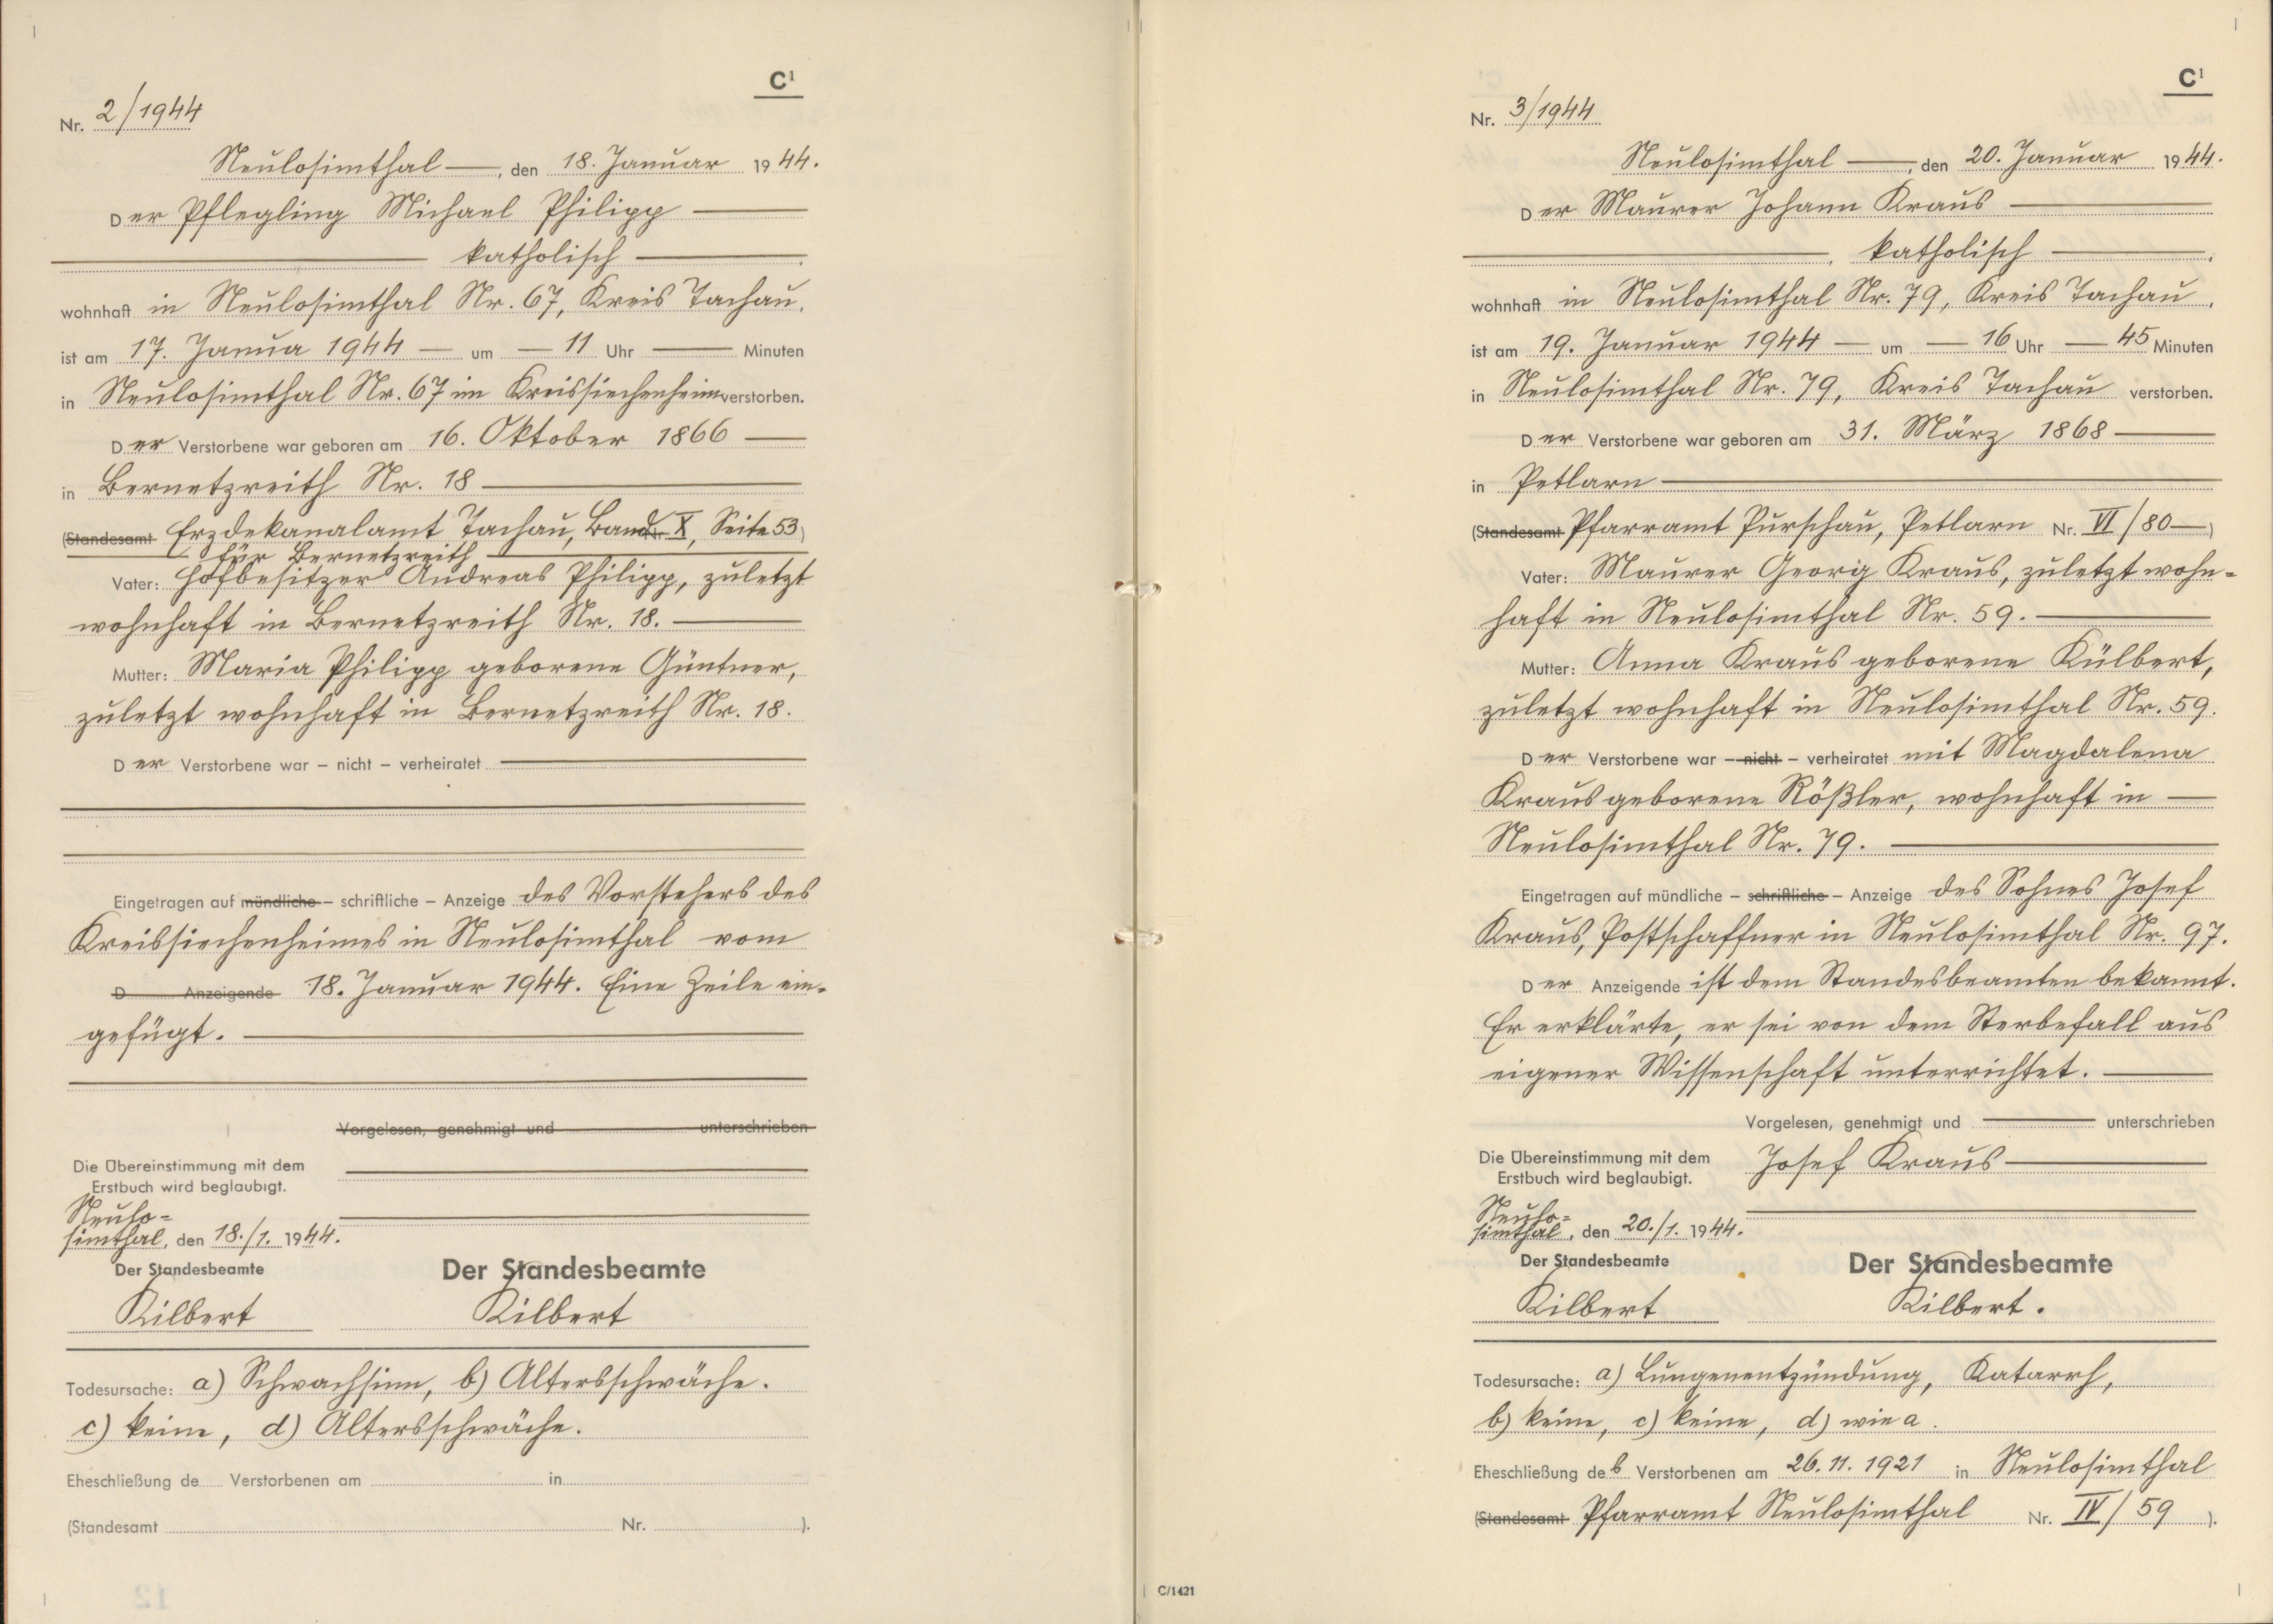 C¹
Nr. 2/1944
Neulosimthal —, den 18. Januar 1944.
Der Pflegling Michael Philipp —
— katholisch —.
wohnhaft in Neulosimthal Nr. 67, Kreis Tachau,
ist am 17. Janua 1944 — um — 11 Uhr — Minuten
in Neulosimthal Nr. 67 im Kreissiechenheim verstorben.
Der Verstorbene war geboren am 16. Oktober 1866 —
in Bernetzreith Nr. 18 —
(Standesamt Erzdekanalamt Tachau, Band Nr. X, Seite 53)
— für Bernetzreith —
Vater: Hofbesitzer Andreas Philipp, zuletzt
wohnhaft in Bernetzreith Nr. 18. —
Mutter: Maria Philipp geborene Güntner,
zuletzt wohnhaft in Bernetzreith Nr. 18.
Der Verstorbene war – nicht – verheiratet —
Eingetragen auf mündliche – schriftliche – Anzeige des Vorstehers des
Kreissiechenheimes in Neulosimthal vom
D Anzeigende 18. Januar 1944. Eine Zeile ein-
gefügt. —
Vorgelesen, genehmigt und unterschrieben
Die Übereinstimmung mit dem
Erstbuch wird beglaubigt.
Neulo-
simthal, den 18./1. 1944.
Der Standesbeamte
Kilbert
Der Standesbeamte
Kilbert
Todesursache: a) Schwachsinn, b) Altersschwäche.
c) keine, d) Altersschwäche.
Eheschließung de Verstorbenen am in
(Standesamt Nr. ).
C¹
Nr. 3/1944
Neulosimthal —, den 20. Januar 1944.
Der Maurer Johann Kraus —
—, katholisch —,
wohnhaft in Neulosimthal Nr. 79, Kreis Tachau,
ist am 19. Januar 1944 — um — 16 Uhr — 45 Minuten
in Neulosimthal Nr. 79, Kreis Tachau verstorben.
Der Verstorbene war geboren am 31. März 1868 —
in Petlarn —
(Standesamt Pfarramt Purschau, Petlarn Nr. VI/80 —)
Vater: Maurer Georg Kraus, zuletzt wohn-
haft in Neulosimthal Nr. 59. —
Mutter: Anna Kraus geborene Külbert,
zuletzt wohnhaft in Neulosimthal Nr. 59.
Der Verstorbene war – nicht – verheiratet mit Magdalena
Kraus geborene Rößler, wohnhaft in —
Neulosimthal Nr. 79. —
Eingetragen auf mündliche – schriftliche – Anzeige des Sohnes Josef
Kraus, Postschaffner in Neulosimthal Nr. 97.
Der Anzeigende ist dem Standesbeamten bekannt.
Er erklärte, er sei von dem Sterbefall aus
eigener Wissenschaft unterrichtet. —
Vorgelesen, genehmigt und — unterschrieben
Die Übereinstimmung mit dem
Erstbuch wird beglaubigt.
Josef Kraus —
Neulo-
simthal, den 20./1. 1944.
Der Standesbeamte
Kilbert
Der Standesbeamte
Kilbert.
Todesursache: a) Lungenentzündung, Katarrh,
b) keine, c) keine, d) wie a.
Eheschließung des Verstorbenen am 26. 11. 1921 in Neulosimthal
(Standesamt Pfarramt Neulosimthal Nr. IV/59 ).
C/1421